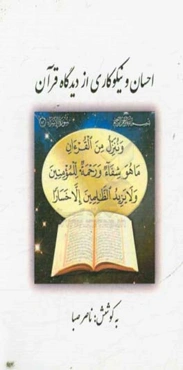 احسان و نیکوکاری از دیدگاه قرآن
وَنُنَزِّلُ مِنَ الْقُرْءَانِ
مَا هُوَ شِفَآءٌ وَرَحْمَةٌ لِّلْمُؤْمِنِينَ
وَلَا يَزِيدُ الظَّالِمِينَ إِلَّا خَسَارًا
به کوشش: ناصر صبا